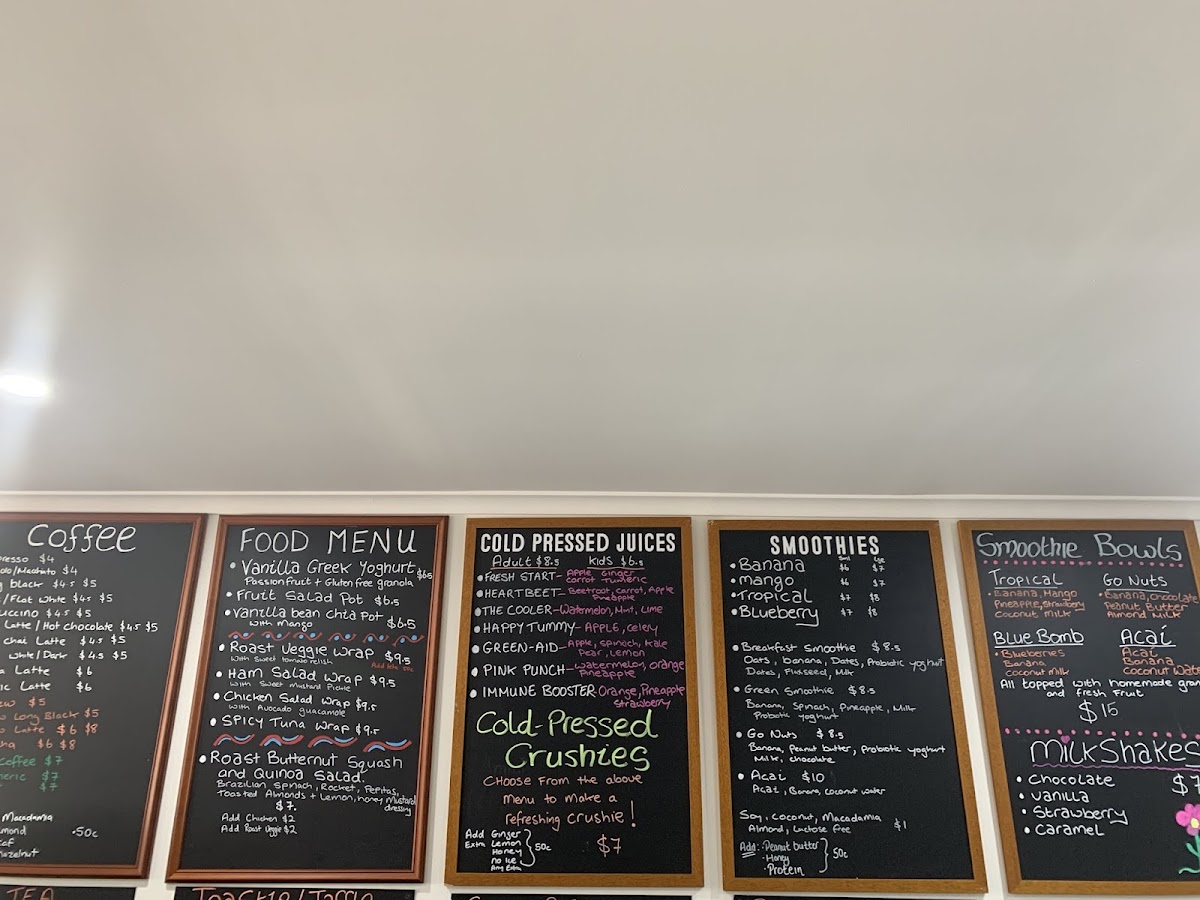 Coffee
resso $4
olo/Machiato $4
g black $4.5 $5
/Flat White $4.5 $5
uccino $4.5 $5
Latte/Hot chocolate $4.5 $5
chai Latte $4.5 $5
white/Dark $4.5 $5
a Latte $6
ic Latte $6
ew $5
o Long Black $5
o Latte $6 $8
ha $6 $8
coffee $7
meric $7
$7
Macadamia
mond .50c
caf
Hazelnut
TEA
FOOD MENU
• Vanilla Greek Yoghurt $6.5
Passionfruit + Gluten free granola
• Fruit Salad Pot $6.5
• vanilla bean chia pot $6.5
with mango
• Roast Veggie wrap $9.5
with Sweet tomato relish
• Ham Salad wrap $9.5
with Sweet mustard Pickle
• Chicken Salad wrap $9.5
with Avocado guacamole
• SPICY Tuna wrap $9.5
• Roast Butternut Squash
and Quinoa Salad.
Brazilian Spinach, Rocket, Pepitas,
Toasted Almonds + Lemon, honey Mustard
dressing
$7.
Add Chicken $2
Add Roast Veggie $2
COLD PRESSED JUICES
Adult $8.5 Kids $6.5
• FRESH START - Apple Ginger
carrot Turmeric
• HEARTBEET - Beetroot, carrot, Apple
Pineapple
• THE COOLER - Watermelon, Mint, Lime
• HAPPY TUMMY - APPLE, celery
• GREEN-AID - Apple, Spinach, Kale
Pear, Lemon
• PINK PUNCH - watermelon, orange
Pineapple
• IMMUNE BOOSTER Orange, Pineapple
Strawberry
Cold-Pressed
Crushies
CHOOSE From the above
menu to make a
refreshing crushie!
$7
Add Ginger
Extra Lemon
Honey
no Ice
Any Extra
50c
SMOOTHIES
• Banana $6 $7
• mango $6 $7
• Tropical $7 $8
• Blueberry $7 $8
• Breakfast Smoothie $8.5
Oats, banana, Dates, Probiotic yoghurt
Dates, Flaxseed, Milk
• Green Smoothie $8.5
Banana, Spinach, Pineapple, Milk
Probiotic yoghurt
• Go Nuts $8.5
Banana, Peanut butter, Probiotic yoghurt
Milk, chocolate
• Acai $10
Acai, Banana, coconut water
Soy, Coconut, Macadamia
Almond, Lactose free $1
Add: • Peanut butter
• Honey
• Protein
50c
Smoothie Bowls
Tropical
• Banana, Mango
Pineapple, Strawberry
Coconut Milk
Go Nuts
• Banana, chocolate
Peanut Butter
Almond Milk
Blue Bomb
• Blueberries
Banana
Coconut milk
Acai
Acai
Banana
Coconut Wate
All topped with homemade gran
and fresh Fruit
$15
Milkshakes
$7
• Chocolate
• vanilla
• Strawberry
• caramel